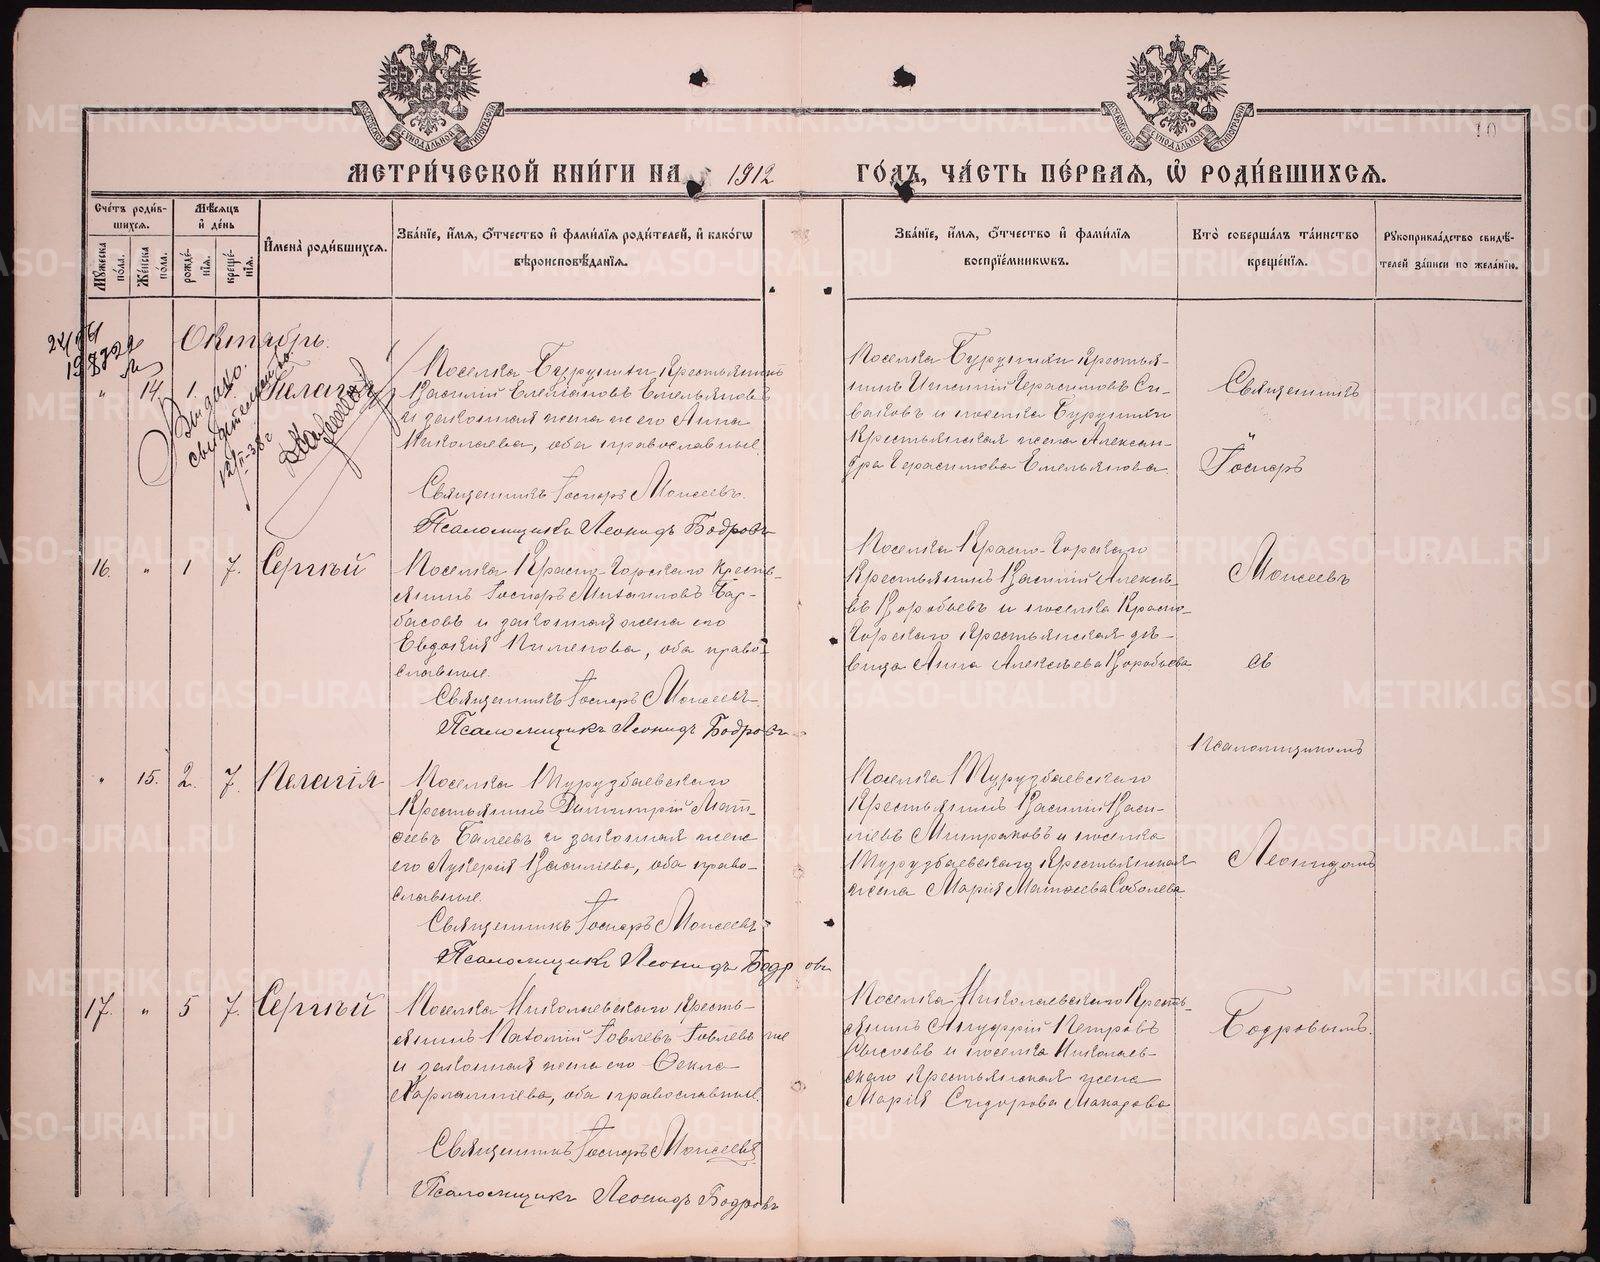 МЕТРИ́ЧЕСКОЙ КНИ́ГИ НА 1912 ГО́ДЪ, ЧА́СТЬ ПЕ́РВАЯ, Ѡ РОДИ́ВШИХСЯ.
10
Сче́тъ роди́вшихся.
Му́жеска по́ла.
Же́нска по́ла.
Мѣ́сяцъ и де́нь
рожде́нія.
креще́нія.
Имена̀ роди́вшихся.
Зва́ніе, и́мя, ѻ́тчество и фами́лія роди́телей, и како́гѡ вѣроисповѣ́данія.
Зва́ніе, и́мя, ѻ́тчество и фами́лія воспріе́мникѡвъ.
Кто̀ соверша́лъ та́инство креще́нія.
Рукоприкла́дство свидѣ́телей за́писи по жела́нію.
Октябрь.
Выдано
свидетельство
12/II-38 г
" 14. 1.
Пелагія
Поселка Бурушки Крестьянинъ
Василій Емельяновъ
и законная жена его Анна
Николаева, оба православные.
Священникъ Госперъ Моисеевъ.
Псаломщикъ Леонидъ Бодровъ
Поселка Бурушки Крестья-
нинъ Герасимовъ Си-
ваковъ и поселка Бурушки
Крестьянская жена Алексан-
дра Герасимова Емельянова.
Священникъ
Госперъ
Моисеевъ
съ
Псаломщикомъ
Леонидомъ
Бодровымъ.
16. " 1 7. Сергѣй
Поселка Красно-Горскаго кресть-
янинъ Госперъ Михаиловъ Бар-
басовъ и законная жена его
Евдокія Пименова, оба право-
славные.
Священникъ Госперъ Моисеевъ.
Псаломщикъ Леонидъ Бодровъ
Поселка Красно-Горскаго
Крестьянинъ Василій Алексѣе-
въ Воробьевъ и поселка Красно-
Горскаго Крестьянская дѣ-
вица Анна Алексѣева Воробьева
" 15. 2. 7. Пелагія
Поселка
Крестьянинъ Димитрій Мат-
ѳеевъ Балеевъ и законная жена
его Лукерія Василіева, оба право-
славные.
Священникъ Госперъ Моисеевъ
Псаломщикъ Леонидъ Бодровъ
Поселка
Крестьянинъ Василій Васи-
ліевъ Митраковъ и поселка
Крестьянская
жена Марія Матѳеева Соболева
17. " 5 7. Сергѣй
Поселка Николаевскаго Кресть-
янинъ Іовлевъ Іовлевъ же
и законная жена его Ѳекла
Харлампіева, оба православные.
Священникъ Госперъ Моисеевъ
Псаломщикъ Леонидъ Бодровъ
Поселка Николаевскаго Кресть-
янинъ Ануфрій Петровъ
Сысоевъ и поселка Николаев-
скаго Крестьянская жена
Марія Сидорова Макарова
METRIKI.GASO-URAL.RU